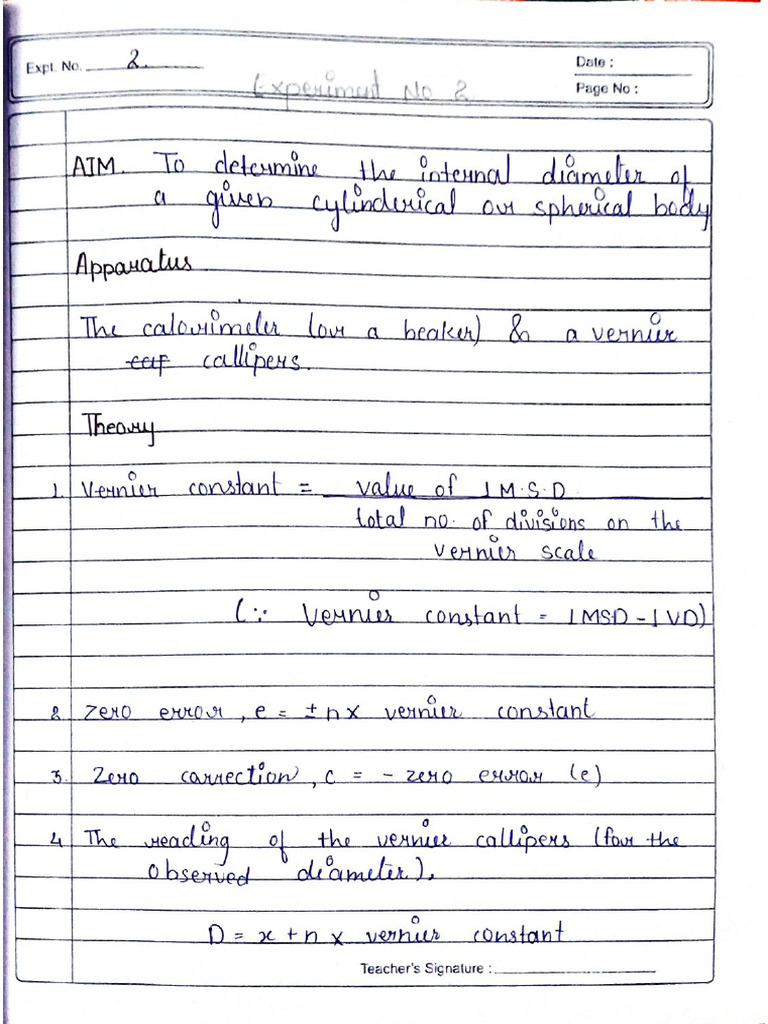 Expt. No. 2
Date :
Experiment No 2
Page No :
AIM. To determine the internal diameter of
a given cylinderical or spherical body
Apparatus
The calorimeter (or a beaker) & a vernier
caf callipers.
Theory
1. Vernier constant = value of 1 M.S.D
total no. of divisions on the
vernier scale
(∵ Vernier constant = 1MSD - 1VD)
2. Zero error, e = ± n x vernier constant
3. Zero carrection, c = - zero error (e)
4 The reading of the vernier callipers (for the
observed diameter),
D = x + n x vernier constant
Teacher's Signature :